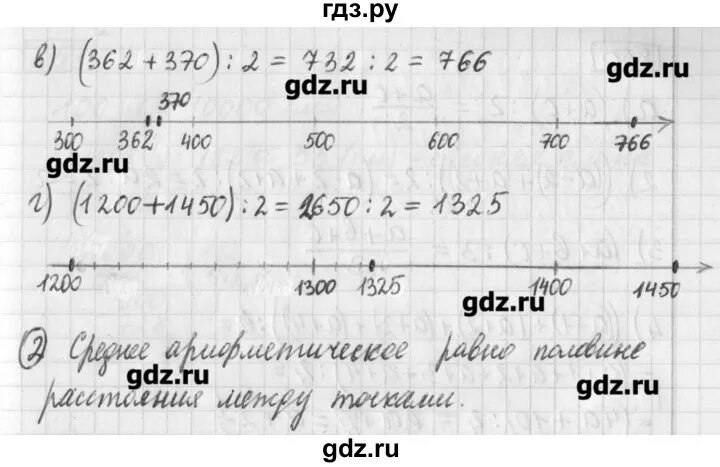 гдз.ру
в) (362 + 370) : 2 = 732 : 2 = 766
gdz.ru
370
300 362 400 500 600 700 766
gdz.ru gdz.ru
г) (1200+1450) : 2 = 2650 : 2 = 1325
1200 1300 1325 1400 1450
gdz.ru
② Среднее арифметическое равно половине
gdz.ru gdz.ru
расстояния между точками.
gdz.ru